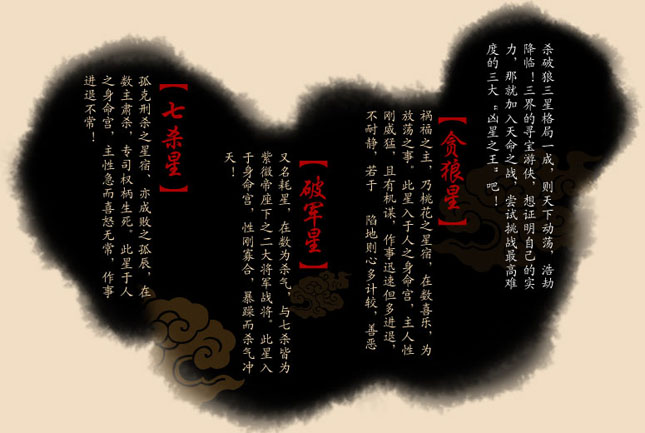 杀破狼三星格局一成，则天下动荡，浩劫
降临！三界的寻宝游侠，想证明自己的实
力，那就加入天命之战，尝试挑战最高难
度的三大“凶星之王”吧！
【贪狼星】
祸福之主，乃桃花之星宿，在数喜乐，为
放荡之事。此星入于人之身命宫，主人性
刚威猛，且有机谋，作事迅速但多进退，
不耐静，若于 陷地则心多计较，善恶
【破军星】
又名耗星，在数为杀气，与七杀皆为
紫微帝座下之二大将军战将。此星入
于身命宫，性刚寡合，暴躁而杀气冲
天！
【七杀星】
孤克刑杀之星宿、亦成败之孤辰，在
数主肃杀，专司权柄生死。此星于人
之身命宫，主性急而喜怒无常，作事
进退不常！